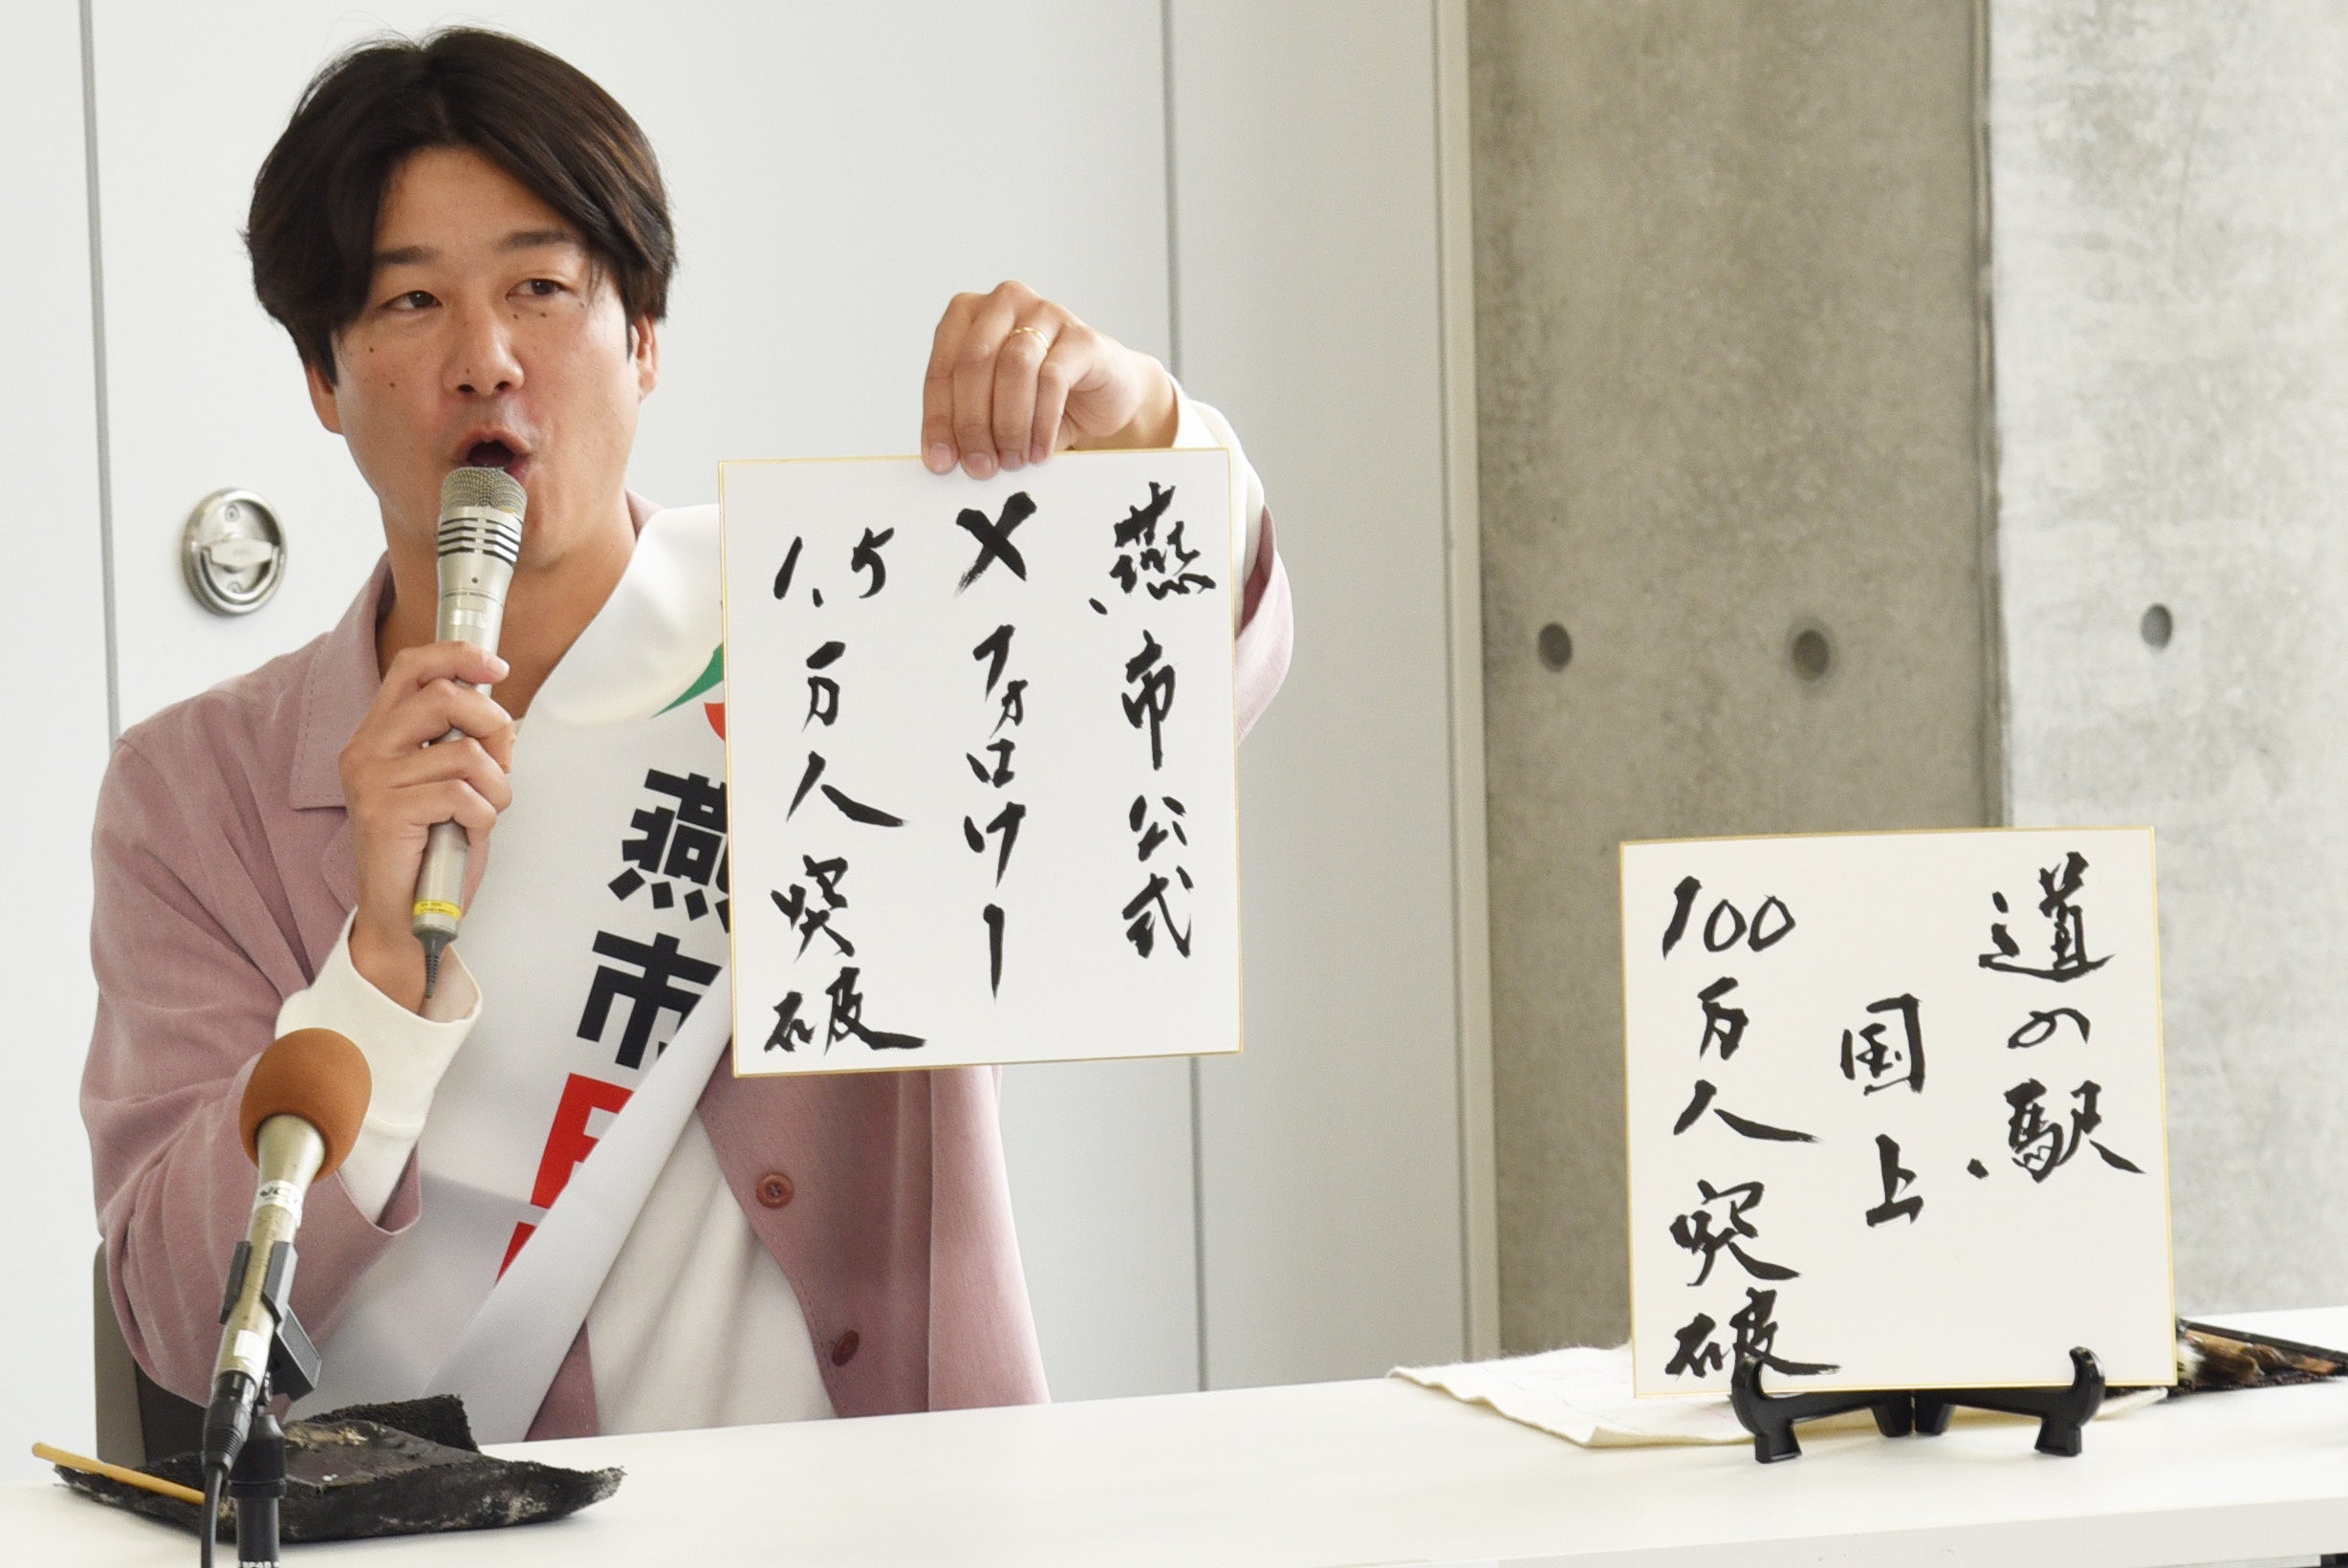 燕市公式
Xフォロワー
1.5万人突破
道の駅
国上
100万人突破
燕市